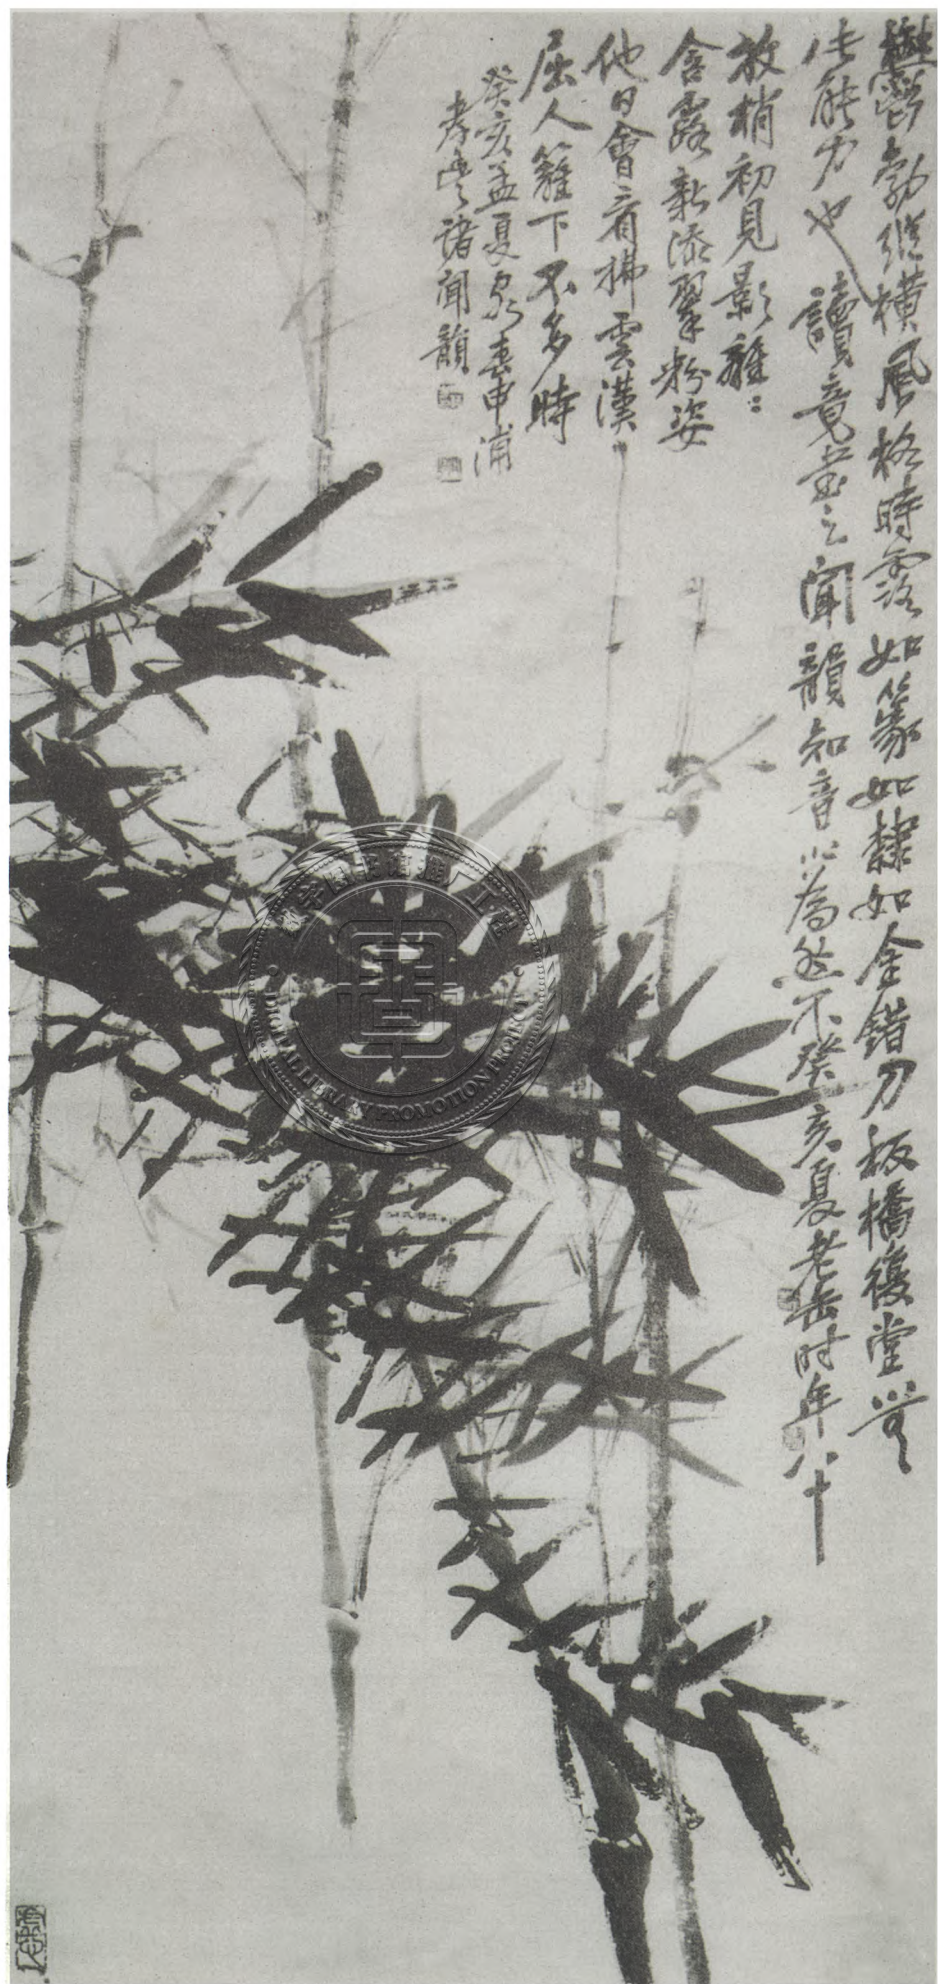 鬱勃縱橫風格時露如篆如隸如金錯刀板橋復堂無
此能力也讀竟書之聞韻知音以為然不癸亥夏老缶時年八十
放梢初見影離〻
含露新添翠粉姿
他日會看拂雲漢
屈人籬下不多時
癸亥孟夏客春申浦
孝豐諸聞韻
DIGITAL LIBRARY PROMOTION PROJECT